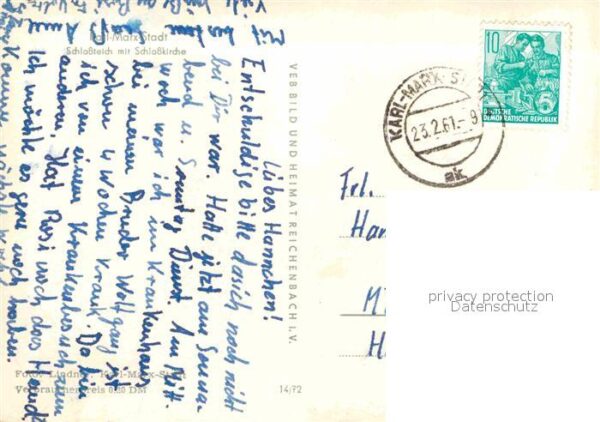 Karl-Marx-Stadt
Schloßteich mit Schloßkirche
Liebes Hannchen!
Entschuldige bitte daß ich noch nicht
bei Dir war. Hatte jetzt am Sonna-
bend u. Sonntag Dienst. Am Mitt-
woch war ich im Krankenhaus
bei meinem Bruder Wolfgang ist
schon 4 Wochen krank. Da bin
ich von einem Krankenbesuch zum
anderen. Hat Rosi noch das Hemd?
Ich möchte es gern noch haben.
Komme nächste Woche
VEB BILD UND HEIMAT REICHENBACH I. V.
Foto: Lindner, Karl-Marx-Stadt
Verbraucherpreis 0,20 DM
14/72
10
DEUTSCHE
DEMOKRATISCHE REPUBLIK
KARL-MARX-STADT
23.2.61.-9
ak
Frl.
Han
M
H
privacy protection
Datenschutz